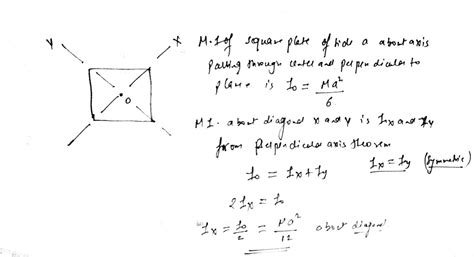 Y
X
O
M.I of square plate of side a about axis
passing through center and perpendicular to
plane is I₀ = Ma²/6
M.I. about diagonal x and y is Ix and Iy
from perpendicular axis theorem
I₀ = Ix + Iy    Ix = Iy (Symmetric)
2Ix = I₀
Ix = I₀/2 = Ma²/12 about diagonal